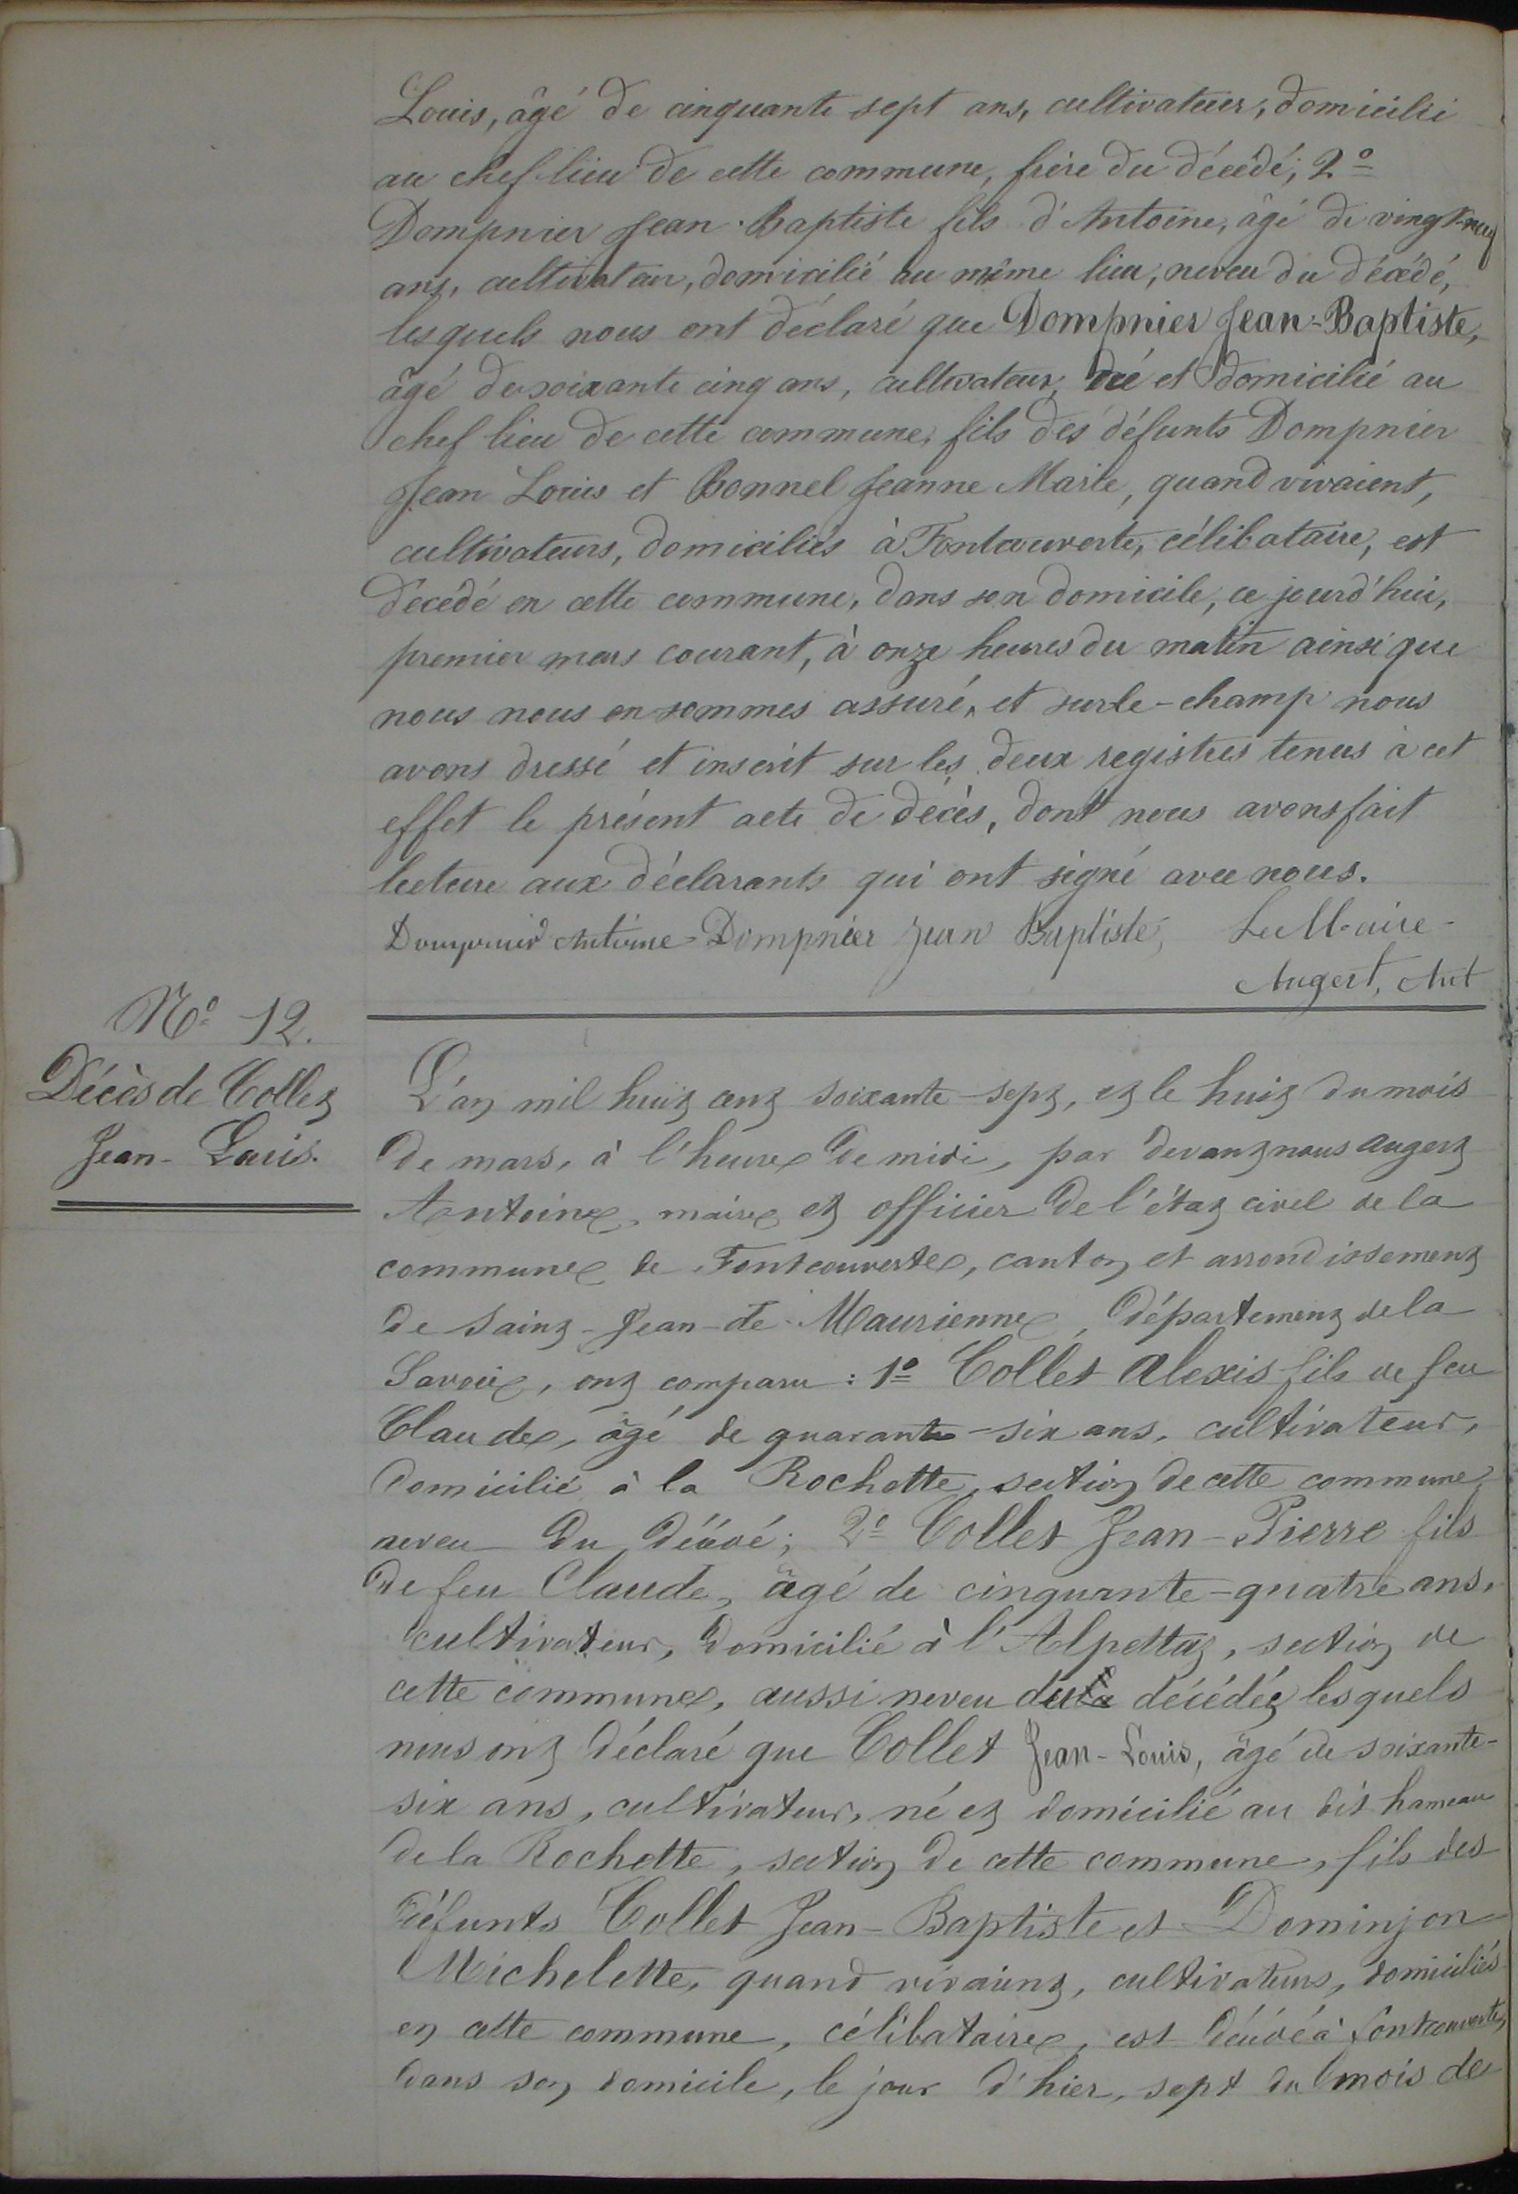 Louis, âgé de cinquante sept ans, cultivateur, domicilié
au chef lieu de cette commune, frère du décédé; 2º
Dompnier Jean-Baptiste fils d'Antoine, âgé de vingt-neuf
ans, cultivateur, domicilié au même lieu, neveu du décédé,
lesquels nous ont déclaré que Dompnier Jean-Baptiste,
âgé de soixante cinq ans, cultivateur, né et domicilié au
chef lieu de cette commune, fils des défunts Dompnier
Jean Louis et Bonnel Jeanne Marie, quand vivaient,
cultivateurs, domiciliés à Fontcouverte, célibataire, est
décédé en cette commune, dans son domicile, ce jourd'hui,
premier mars courant, à onze heures du matin ainsi que
nous nous en sommes assuré, et sur le-champ nous
avons dressé et inscrit sur les deux registres tenus à cet
effet le présent acte de décès, dont nous avons fait
lecture aux déclarants qui ont signé avec nous.
Dompnier Antoine Dompnier Jean Baptiste, Le Maire
Augert, Ant
Nº 12.
Décès de Collet
Jean-Louis.
L'an mil huit cent soixante-sept, et le huit du mois
de mars, à l'heure de midi, par devant nous Augert
Antoine, maire et officier de l'état civil de la
commune de Fontcouverte, canton et arrondissement
de Saint-Jean-de-Maurienne, département de la
Savoie, ont comparu : 1º Collet Alexis fils de feu
Claude, âgé de quarante-six ans, cultivateur,
domicilié à la Rochette, section de cette commune,
neveu du décédé; 2º Collet Jean-Pierre fils
de feu Claude, âgé de cinquante-quatre ans,
cultivateur, domicilié à l'Alpettaz, section de
cette commune, aussi neveu du décédé, lesquels
nous ont déclaré que Collet Jean-Louis, âgé de soixante-
six ans, cultivateur, né et domicilié au dit hameau
de la Rochette, section de cette commune, fils des
défunts Collet Jean-Baptiste et Dominjon
Michelette, quand vivaient, cultivateurs, domiciliés
en cette commune, célibataire, est décédé à Fontcouverte,
dans son domicile, le jour d'hier, sept du mois de